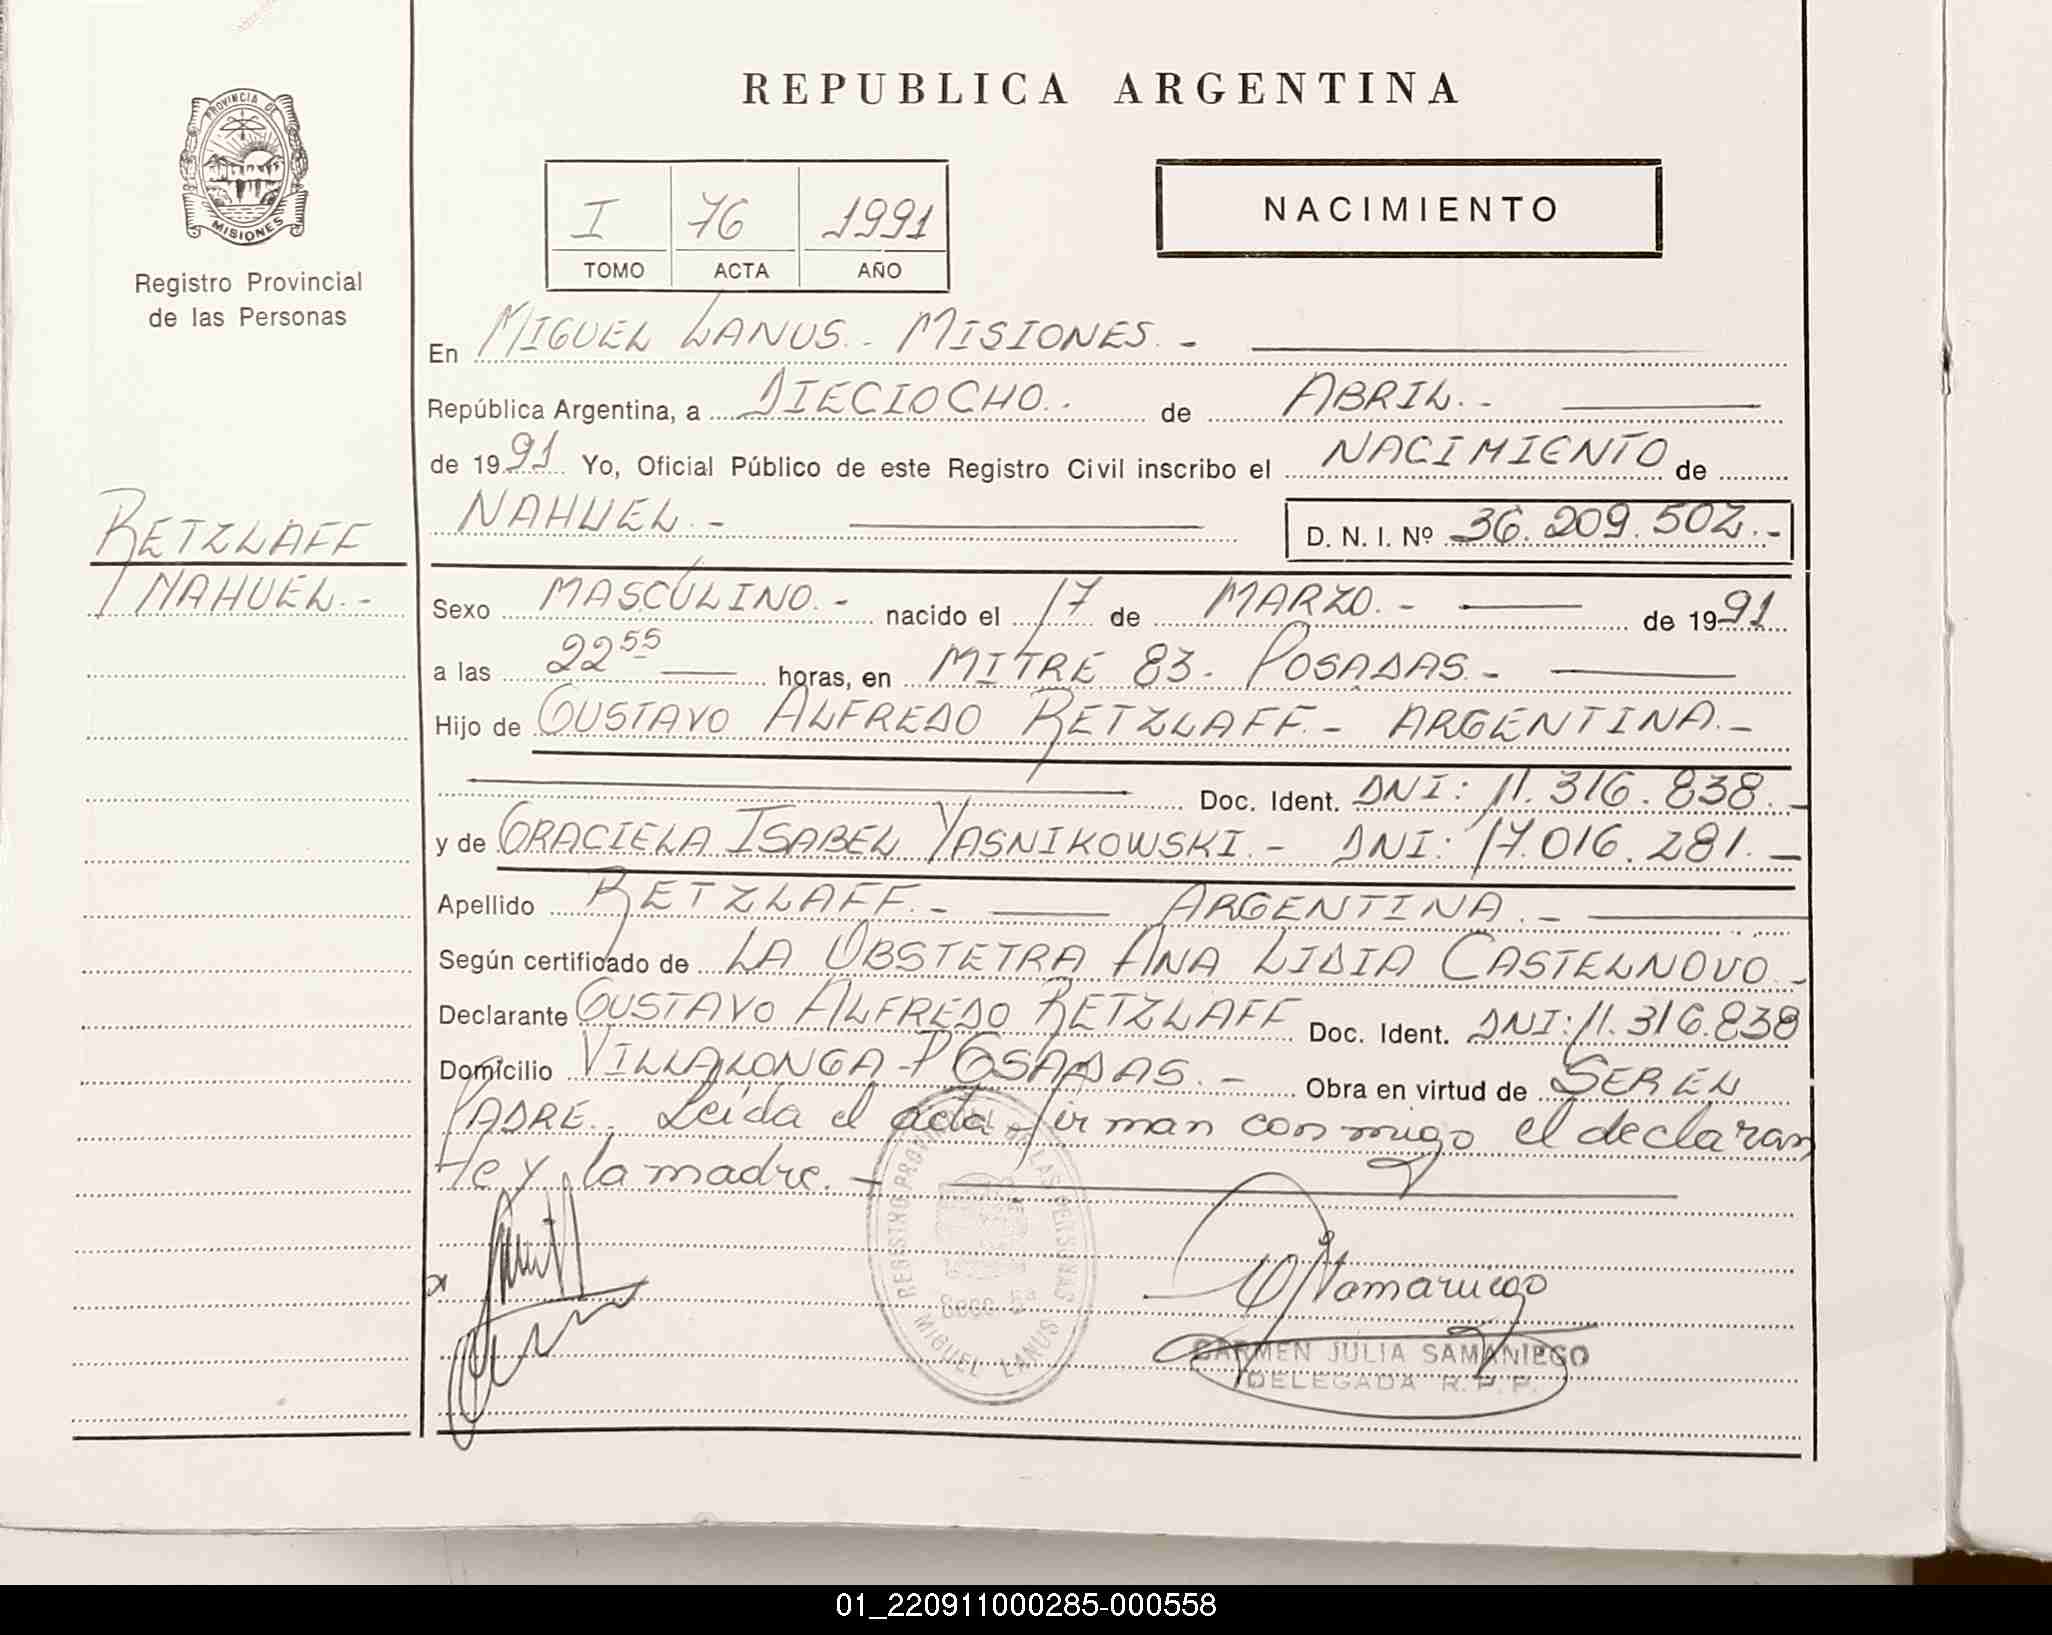 PROVINCIA DE
MISIONES
Registro Provincial
de las Personas
RETZLAFF
NAHUEL.-
REPUBLICA ARGENTINA
I 76 1991
TOMO ACTA AÑO
NACIMIENTO
En MIGUEL LANUS.- MISIONES.-
República Argentina, a DIECIOCHO.- de ABRIL.-
de 1991 Yo, Oficial Público de este Registro Civil inscribo el NACIMIENTO de
NAHUEL.- D. N. I. Nº 36.209.502.-
Sexo MASCULINO.- nacido el 17 de MARZO.- de 1991
a las 22 55 horas, en MITRE 83- POSADAS.-
Hijo de GUSTAVO ALFREDO RETZLAFF.- ARGENTINA.-
Doc. Ident. DNI: 11.316.838.-
y de GRACIELA ISABEL YASNIKOWSKI.- DNI: 17.016.281.-
Apellido RETZLAFF.- ARGENTINA.-
Según certificado de LA OBSTETRA ANA LIDIA CASTELNOVO.-
Declarante GUSTAVO ALFREDO RETZLAFF Doc. Ident. DNI: 11.316.838
Domicilio VILLALONGA-POSADAS.- Obra en virtud de SER EL
PADRE.. Leída el acta firman conmigo el declaran
te y la madre.-
REGISTRO PROVINCIAL DE LAS PERSONAS
MIGUEL LANUS
CARMEN JULIA SAMANIEGO
DELEGADA R.P.P.
01_220911000285-000558